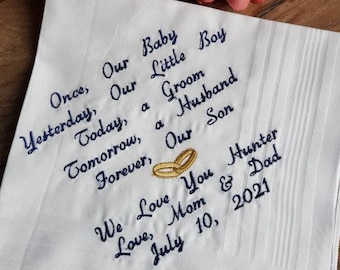 Once, Our Baby Boy
Yesterday, Our Little Boy
Today, a Groom
Tomorrow, a Husband
Forever, Our Son
We Love You Hunter
Love, Mom & Dad
July 10, 2021